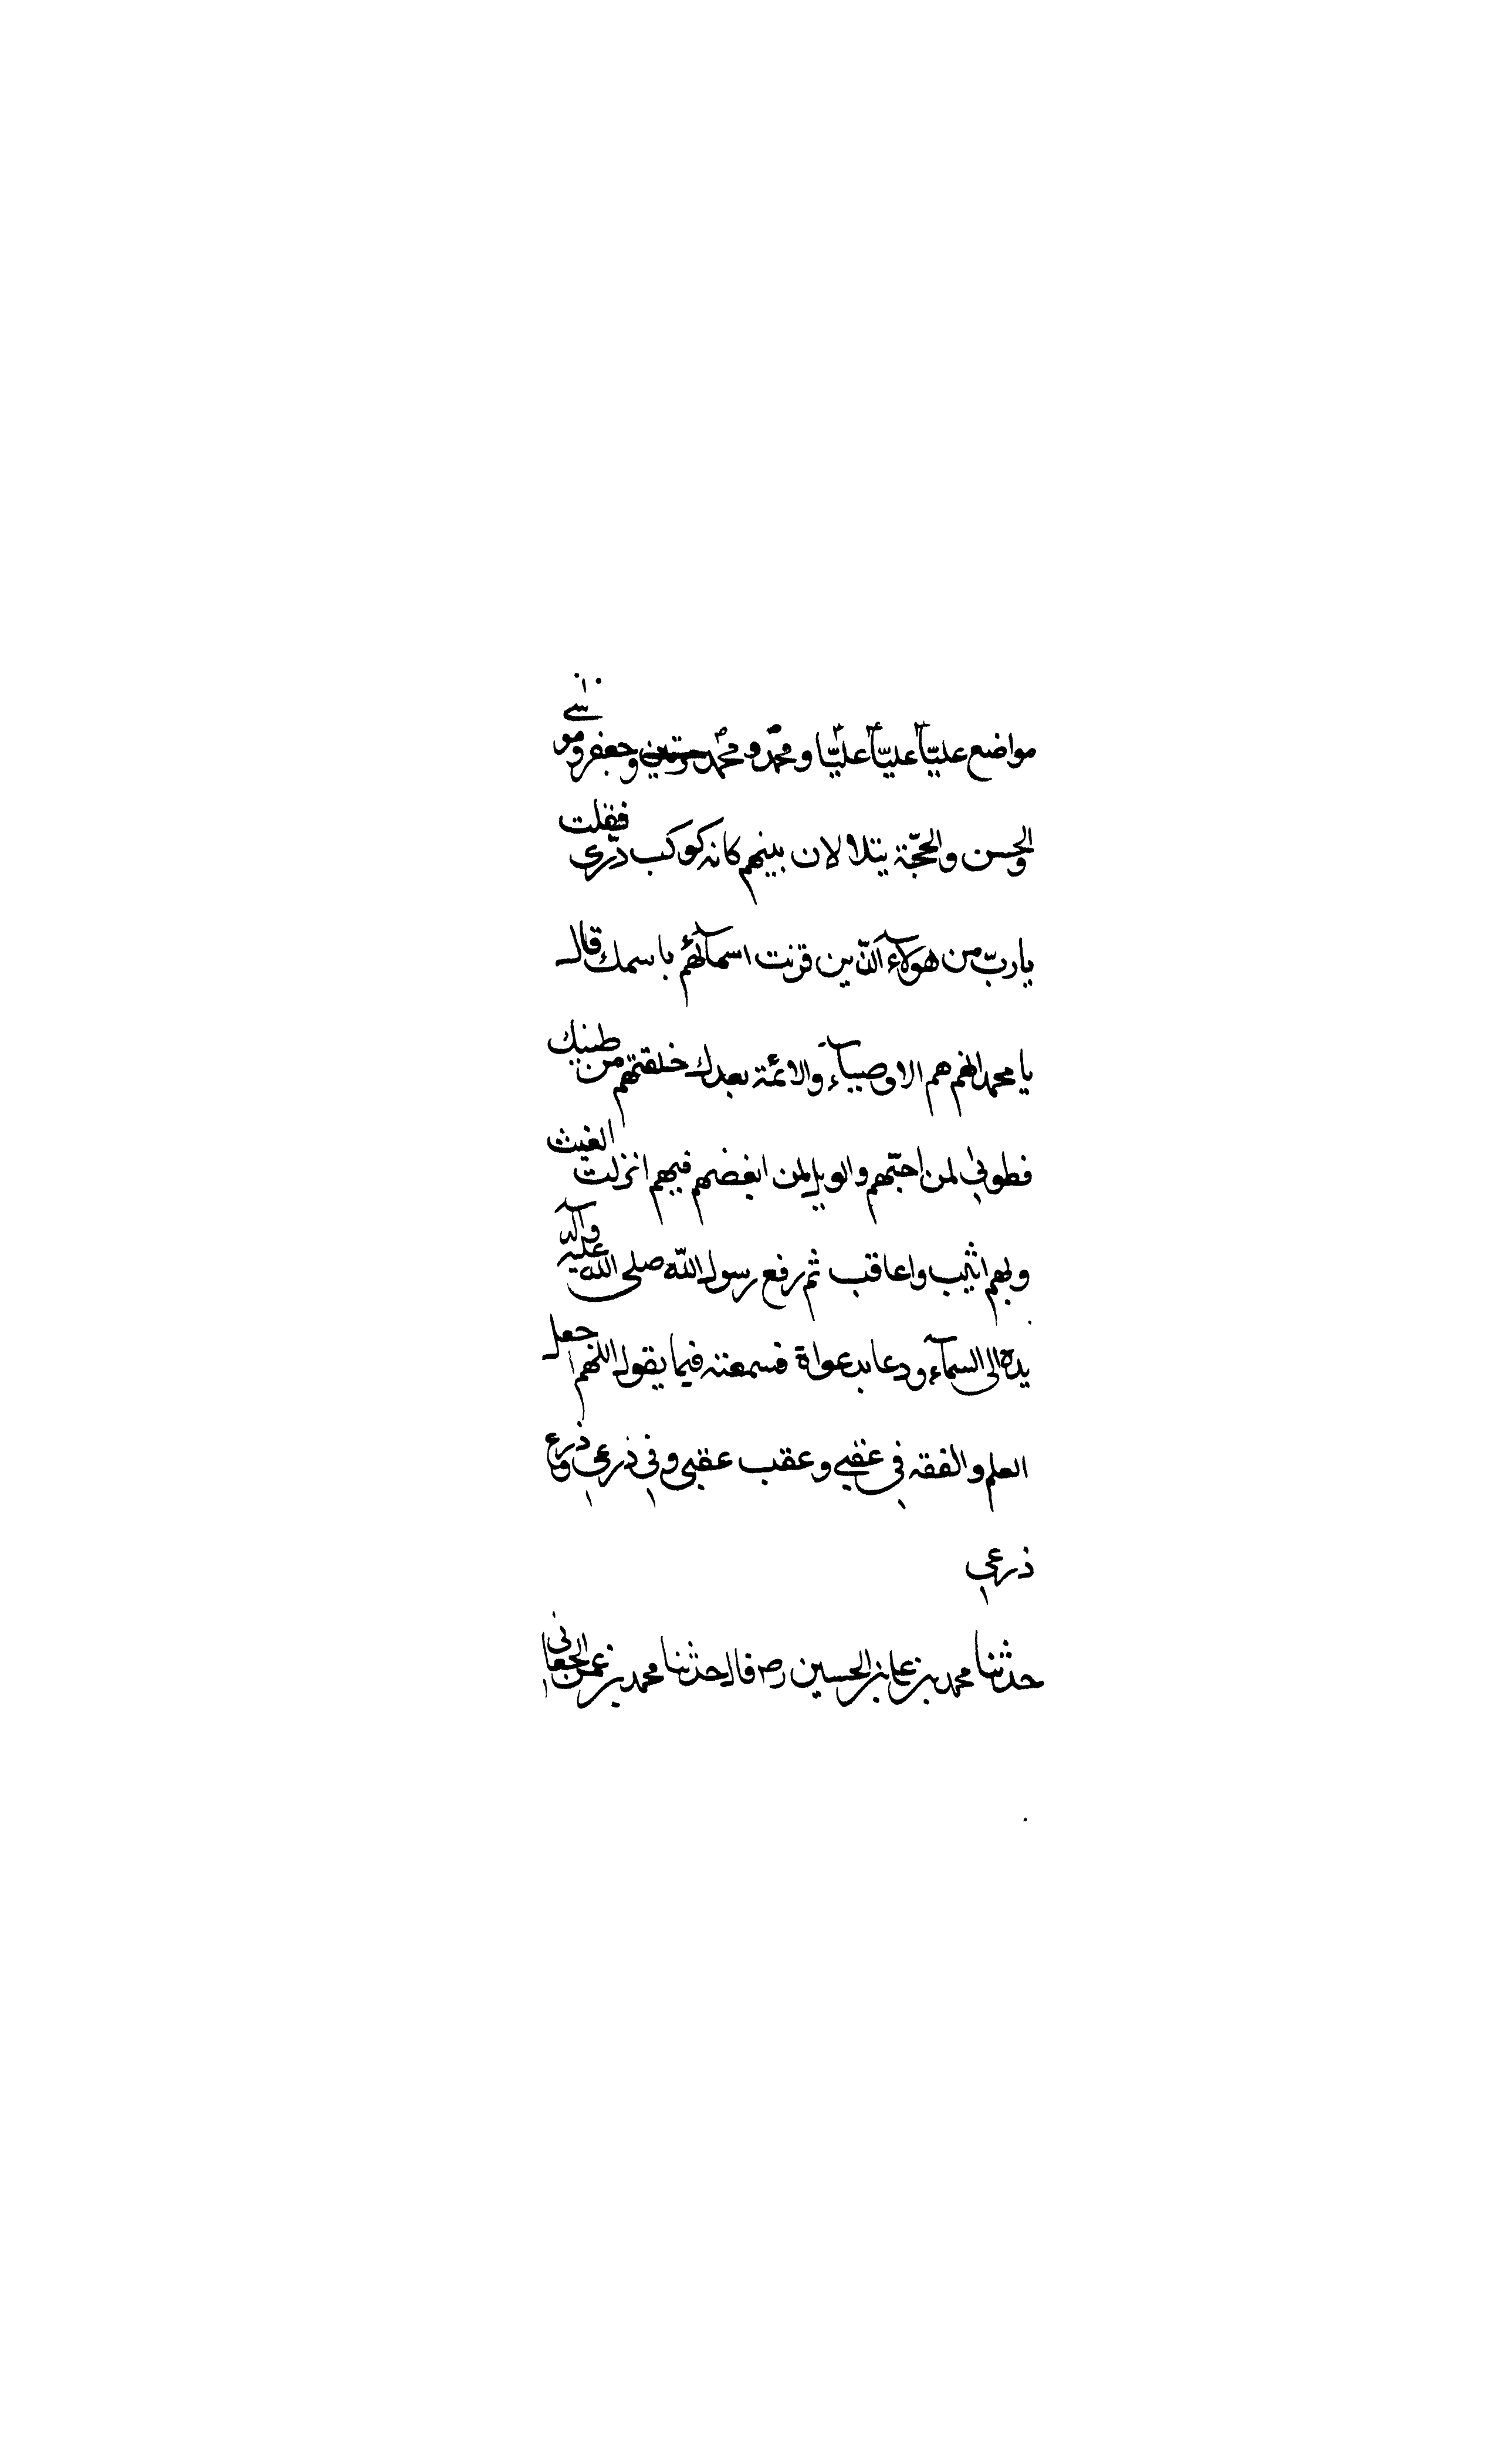 مواضع عليّاً عليّاً عليّاً و محمّد و محمّد مرتين وجعفر وموسى
والحسن والحجّة يتلالان بينهم كانه كوكب درّي فقلت
يا ربّ من هولآء الّذين قرنت اسمآئهم باسمك قال
يا محمد انهم هم الاوصيآء والائمة بعدك خلقتهم من طينتك
فطوبى لمن احبّهم والويل لمن ابغضهم فبهم انزلت الغيث
وبهم اثيب واعاقب ثم رفع رسول اللّه صلى اللّه عليه وآله
يده الى السمآء ودعا بدعواة فسمعته فيما يقول اللهم اجعل
العلم والفقه في عقبي وعقب عقبي وفي ذرعي وذرع
ذرعي
حدثنا محمد بن علي بن الحسين رض قال حدثنا محمد بن عمر الجعابي